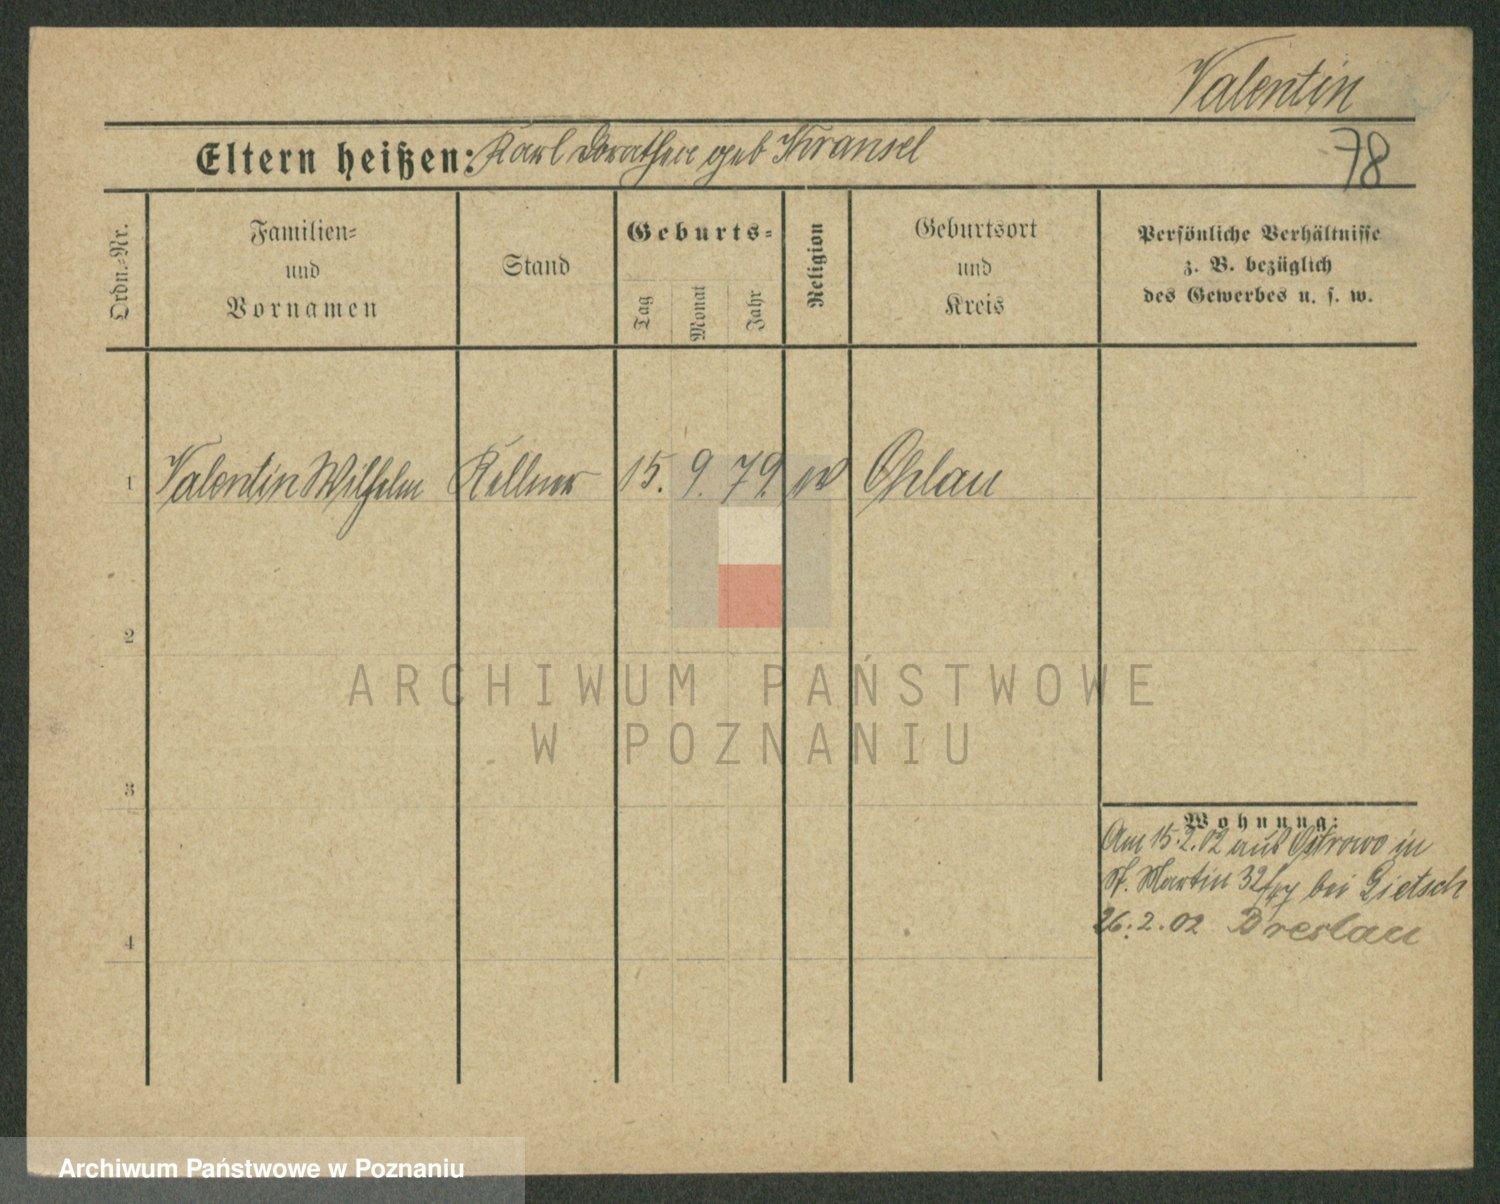 Valentin
Eltern heißen: Karl Dorothea geb
78
Ordn.-Nr.
Familien-
und
Vornamen
Stand
Geburts-
Tag
Monat
Jahr
Religion
Geburtsort
und
Kreis
Persönliche Verhältnisse
z. B. bezüglich
des Gewerbes u. s. w.
1 Valentin Wilhelm Kellner 15. 9. 79. Ohlau
2
3
4
Wohnung:
Am 15.2.02 aus Ostrowo in
St. Martin bei Gietsch
26.2.02 Breslau
ARCHIWUM PAŃSTWOWE
W POZNANIU
Archiwum Państwowe w Poznaniu